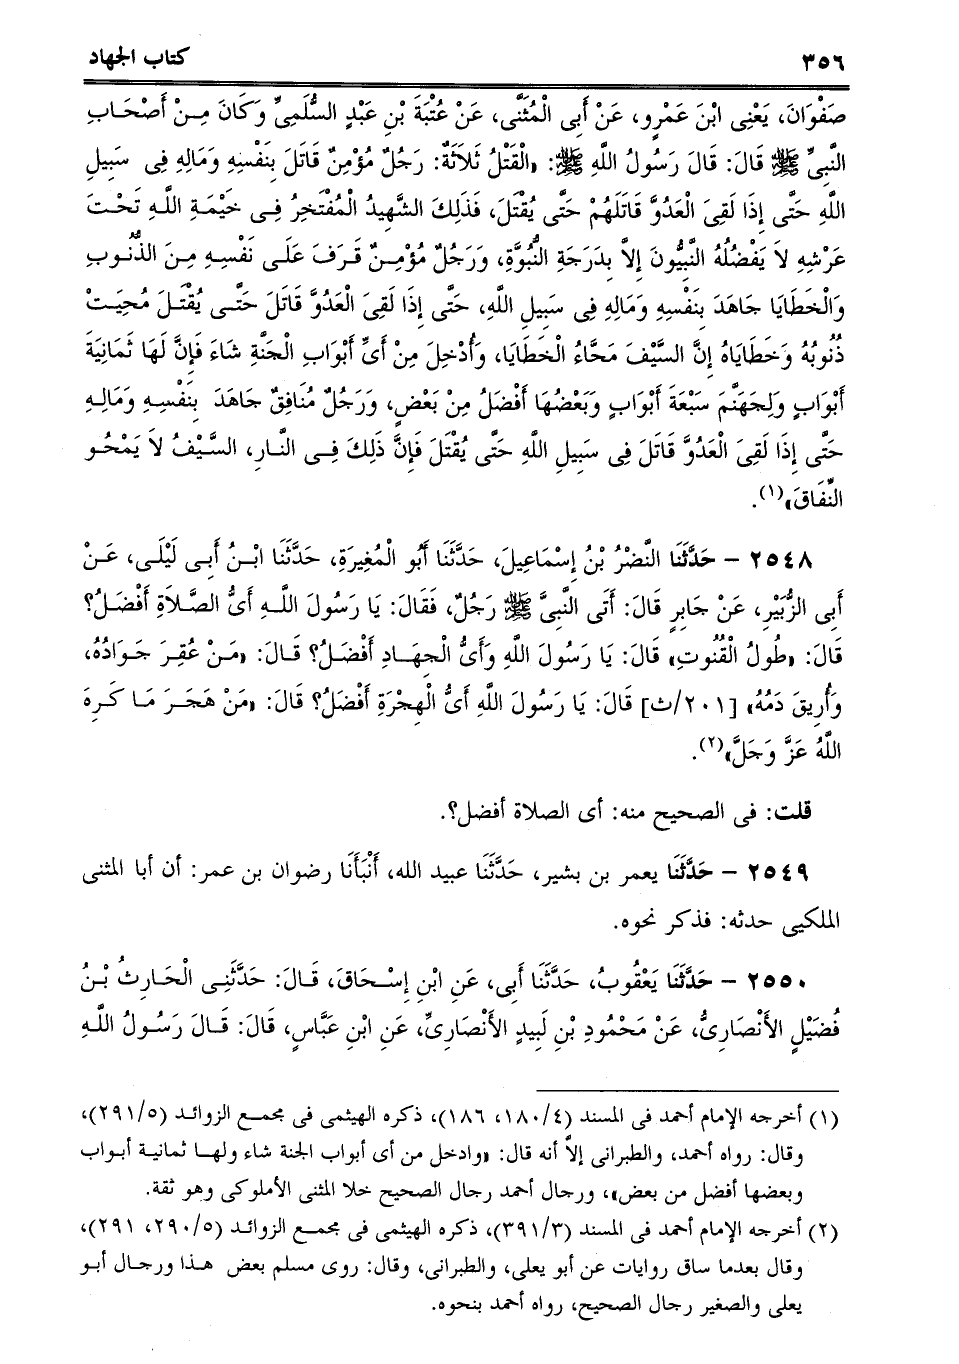 ٣٥٦ كتاب الجهاد
صَفْوَانَ، يَعْنِى ابْنَ عَمْرٍو، عَنْ أَبِى الْمُثَنَّى، عَنْ عُتْبَةَ بْنِ عَبْدٍ السُّلَمِىِّ وَكَانَ مِنْ أَصْحَابِ
النَّبِىِّ ﷺ قَالَ: قَالَ رَسُولُ اللَّهِ ﷺ: «الْقَتْلُ ثَلاَثَةٌ: رَجُلٌ مُؤْمِنٌ قَاتَلَ بِنَفْسِهِ وَمَالِهِ فِى سَبِيلِ
اللَّهِ حَتَّى إِذَا لَقِىَ الْعَدُوَّ قَاتَلَهُمْ حَتَّى يُقْتَلَ، فَذَلِكَ الشَّهِيدُ الْمُفْتَخِرُ فِى خَيْمَةِ اللَّهِ تَحْتَ
عَرْشِهِ لاَ يَفْضُلُهُ النَّبِيُّونَ إِلاَّ بِدَرَجَةِ النُّبُوَّةِ، وَرَجُلٌ مُؤْمِنٌ قَرَفَ عَلَى نَفْسِهِ مِنَ الذُّنُوبِ
وَالْخَطَايَا جَاهَدَ بِنَفْسِهِ وَمَالِهِ فِى سَبِيلِ اللَّهِ، حَتَّى إِذَا لَقِىَ الْعَدُوَّ قَاتَلَ حَتَّى يُقْتَلَ مُحِيَتْ
ذُنُوبُهُ وَخَطَايَاهُ إِنَّ السَّيْفَ مَحَّاءُ الْخَطَايَا، وَأُدْخِلَ مِنْ أَىِّ أَبْوَابِ الْجَنَّةِ شَاءَ فَإِنَّ لَهَا ثَمَانِيَةَ
أَبْوَابٍ وَلِجَهَنَّمَ سَبْعَةَ أَبْوَابٍ وَبَعْضُهَا أَفْضَلُ مِنْ بَعْضٍ، وَرَجُلٌ مُنَافِقٌ جَاهَدَ بِنَفْسِهِ وَمَالِهِ
حَتَّى إِذَا لَقِىَ الْعَدُوَّ قَاتَلَ فِى سَبِيلِ اللَّهِ حَتَّى يُقْتَلَ فَإِنَّ ذَلِكَ فِى النَّارِ، السَّيْفُ لاَ يَمْحُو
النِّفَاقَ»(١).
٢٥٤٨ – حَدَّثَنَا النَّضْرُ بْنُ إِسْمَاعِيلَ، حَدَّثَنَا أَبُو الْمُغِيرَةِ، حَدَّثَنَا ابْنُ أَبِى لَيْلَى، عَنْ
أَبِى الزُّبَيْرِ، عَنْ جَابِرٍ قَالَ: أَتَى النَّبِىَّ ﷺ رَجُلٌ، فَقَالَ: يَا رَسُولَ اللَّهِ أَىُّ الصَّلاَةِ أَفْضَلُ؟
قَالَ: «طُولُ الْقُنُوتِ» قَالَ: يَا رَسُولَ اللَّهِ وَأَىُّ الْجِهَادِ أَفْضَلُ؟ قَالَ: «مَنْ عُقِرَ جَوَادُهُ،
وَأُرِيقَ دَمُهُ» [٢٠١/ث] قَالَ: يَا رَسُولَ اللَّهِ أَىُّ الْهِجْرَةِ أَفْضَلُ؟ قَالَ: «مَنْ هَجَرَ مَا كَرِهَ
اللَّهُ عَزَّ وَجَلَّ»(٢).
قلت: فى الصحيح منه: أى الصلاة أفضل؟.
٢٥٤٩ – حَدَّثَنَا يعمر بن بشير، حَدَّثَنَا عبيد الله، أَنْبَأَنَا رضوان بن عمر: أن أبا المثنى
الملكيى حدثه: فذكر نحوه.
٢٥٥٠ – حَدَّثَنَا يَعْقُوبُ، حَدَّثَنَا أَبِى، عَنِ ابْنِ إِسْحَاقَ، قَالَ: حَدَّثَنِى الْحَارِثُ بْنُ
فُضَيْلٍ الأَنْصَارِىُّ، عَنْ مَحْمُودِ بْنِ لَبِيدٍ الأَنْصَارِىِّ، عَنِ ابْنِ عَبَّاسٍ، قَالَ: قَالَ رَسُولُ اللَّهِ
(١) أخرجه الإمام أحمد فى المسند (١٨٠/٤، ١٨٦)، ذكره الهيثمى فى مجمع الزوائد (٢٩١/٥)،
وقال: رواه أحمد، والطبرانى إلاَّ أنه قال: «وادخل من أى أبواب الجنة شاء ولها ثمانية أبواب
وبعضها أفضل من بعض»، ورجال أحمد رجال الصحيح خلا المثنى الأملوكى وهو ثقة.
(٢) أخرجه الإمام أحمد فى المسند (٣٩١/٣)، ذكره الهيثمى فى مجمع الزوائد (٢٩٠/٥، ٢٩١)،
وقال بعدما ساق روايات عن أبو يعلى، والطبرانى، وقال: روى مسلم بعض هذا ورجال أبو
يعلى والصغير رجال الصحيح، رواه أحمد بنحوه.